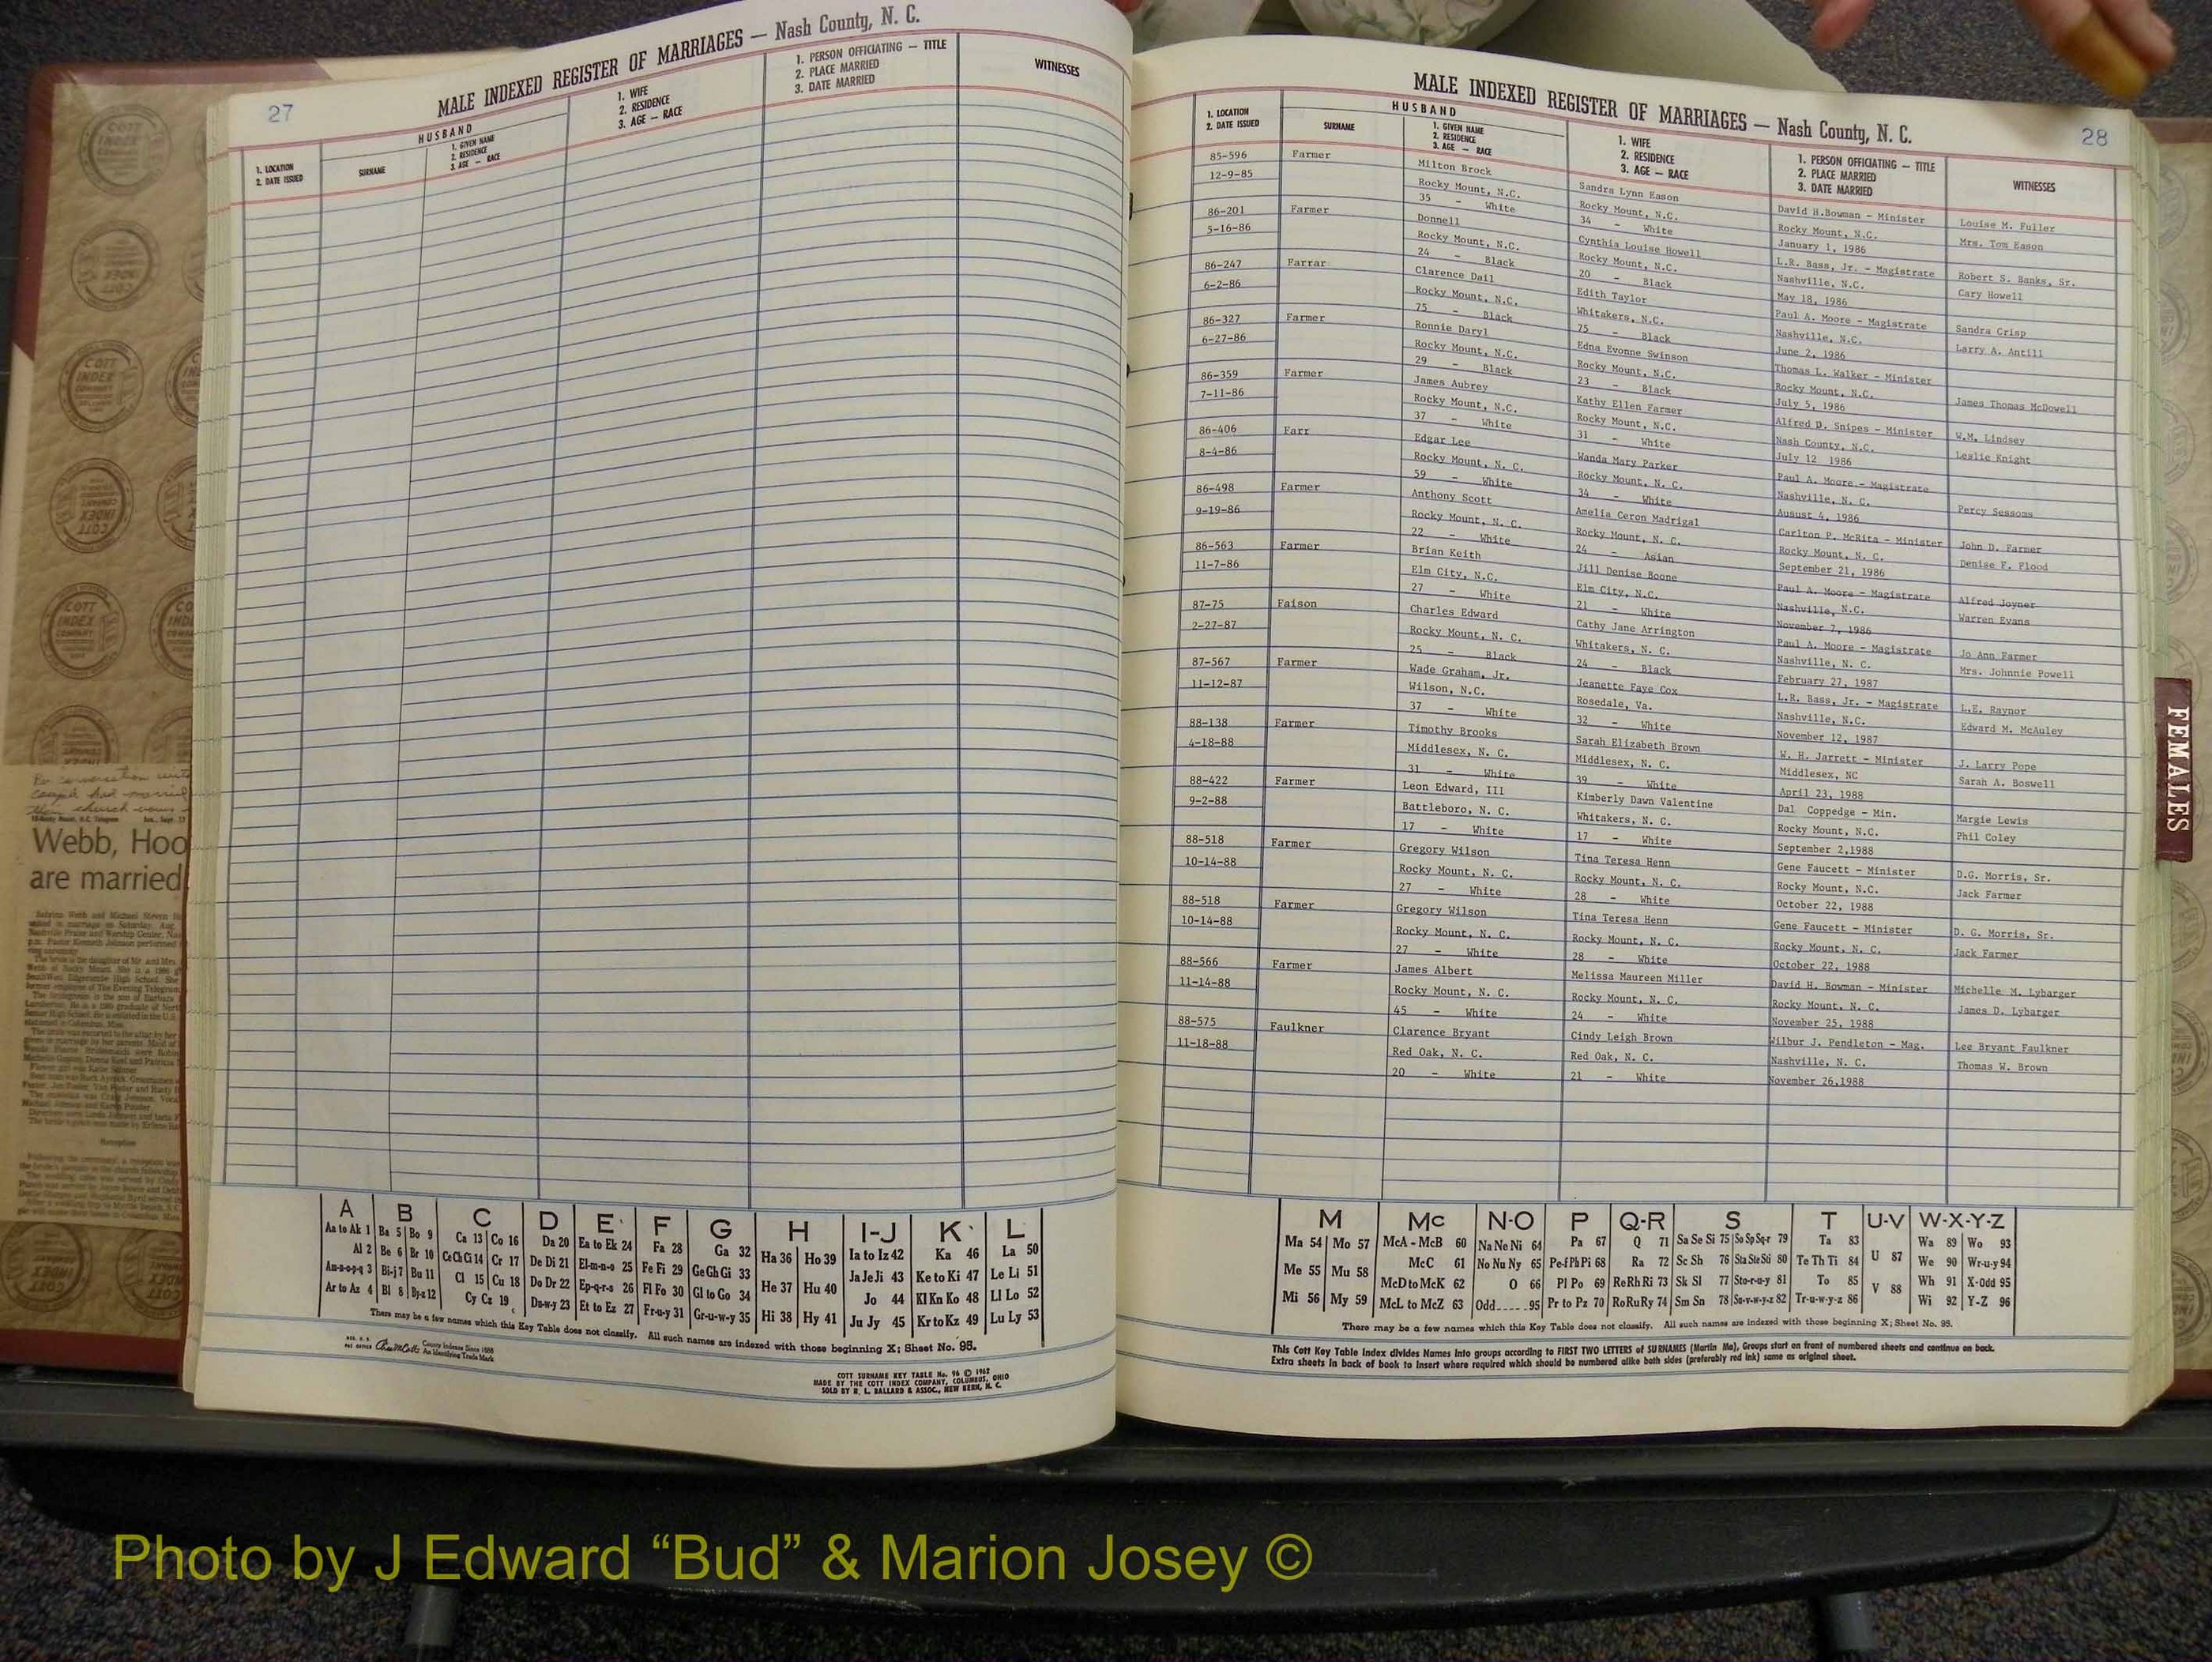 27
MALE INDEXED REGISTER OF MARRIAGES — Nash County, N. C.
HUSBAND
1. LOCATION
2. DATE ISSUED
SURNAME
1. GIVEN NAME
2. RESIDENCE
3. AGE — RACE
1. WIFE
2. RESIDENCE
3. AGE — RACE
1. PERSON OFFICIATING — TITLE
2. PLACE MARRIED
3. DATE MARRIED
WITNESSES
Webb, Hoo
are married
A B C D E F G H I-J K L
Aa to Ak 1 Ba 5 Bo 9 Ca 13 Co 16 Da 20 Ea to Ek 24 Fa 28 Ga 32 Ha 36 Ho 39 Ia to Iz 42 Ka 46 La 50
Al 2 Be 6 Br 10 Ce Ch Ci 14 Cr 17 De Di 21 El-m-n-o 25 Fe Fi 29 Ge Gh Gi 33 Ja Je Ji 43 Ke to Ki 47 Le Li 51
Am-n-o-p-q 3 Bi-j 7 Bu 11 Cl 15 Cu 18 Do Dr 22 Ep-q-r-s 26 Fl Fo 30 Gl to Go 34 He 37 Hu 40 Jo 44 Kl Kn Ko 48 Ll Lo 52
Ar to Az 4 Bl 8 By-z 12 Cy Cz 19 Du-w-y 23 Et to Ez 27 Fr-u-y 31 Gr-u-w-y 35 Hi 38 Hy 41 Ju Jy 45 Kr to Kz 49 Lu Ly 53
There may be a few names which this Key Table does not classify. All such names are indexed with those beginning X; Sheet No. 95.
County Indexes Since 1888
An Identifying Trade Mark
COTT SURNAME KEY TABLE No. 96 © 1967
MADE BY THE COTT INDEX COMPANY, COLUMBUS, OHIO
SOLD BY R. L. BALLARD & ASSOC., NEW BERN, N. C.
MALE INDEXED REGISTER OF MARRIAGES — Nash County, N. C.
28
HUSBAND
1. LOCATION
2. DATE ISSUED
SURNAME
1. GIVEN NAME
2. RESIDENCE
3. AGE — RACE
1. WIFE
2. RESIDENCE
3. AGE — RACE
1. PERSON OFFICIATING — TITLE
2. PLACE MARRIED
3. DATE MARRIED
WITNESSES
85-596 Farmer Milton Brock Sandra Lynn Eason David H.Bowman - Minister Louise M. Fuller
12-9-85 Rocky Mount, N.C. Rocky Mount, N.C. Rocky Mount, N.C. Mrs. Tom Eason
35 - White 34 - White January 1, 1986
86-201 Farmer Donnell Cynthia Louise Howell L.R. Bass, Jr. - Magistrate Robert S. Banks, Sr.
5-16-86 Rocky Mount, N.C. Rocky Mount, N.C. Nashville, N.C. Cary Howell
24 - Black 20 - Black May 18, 1986
86-247 Farrar Clarence Dail Edith Taylor Paul A. Moore - Magistrate Sandra Crisp
6-2-86 Rocky Mount, N.C. Whitakers, N.C. Nashville, N.C. Larry A. Antill
75 - Black 75 - Black June 2, 1986
86-327 Farmer Ronnie Daryl Edna Evonne Swinson Thomas L. Walker - Minister
6-27-86 Rocky Mount, N.C. Rocky Mount, N.C. Rocky Mount, N.C. James Thomas McDowell
29 - Black 23 - Black July 5, 1986
86-359 Farmer James Aubrey Kathy Ellen Farmer Alfred D. Snipes - Minister W.M. Lindsey
7-11-86 Rocky Mount, N.C. Rocky Mount, N.C. Nash County, N.C. Leslie Knight
37 - White 31 - White July 12 1986
86-406 Farr Edgar Lee Wanda Mary Parker Paul A. Moore - Magistrate
8-4-86 Rocky Mount, N. C. Rocky Mount, N. C. Nashville, N. C. Percy Sessoms
59 - White 34 - White August 4, 1986
86-498 Farmer Anthony Scott Amelia Ceron Madrigal Carlton P. McRita - Minister John D. Farmer
9-19-86 Rocky Mount, N. C. Rocky Mount, N. C. Rocky Mount, N. C. Denise F. Flood
22 - White 24 - Asian September 21, 1986
86-563 Farmer Brian Keith Jill Denise Boone Paul A. Moore - Magistrate Alfred Joyner
11-7-86 Elm City, N.C. Elm City, N.C. Nashville, N.C. Warren Evans
27 - White 21 - White November 7, 1986
87-75 Faison Charles Edward Cathy Jane Arrington Paul A. Moore - Magistrate Jo Ann Farmer
2-27-87 Rocky Mount, N. C. Whitakers, N. C. Nashville, N. C. Mrs. Johnnie Powell
25 - Black 24 - Black February 27, 1987
87-567 Farmer Wade Graham, Jr. Jeanette Faye Cox L.R. Bass, Jr. - Magistrate L.E. Raynor
11-12-87 Wilson, N.C. Rosedale, Va. Nashville, N.C. Edward M. McAuley
37 - White 32 - White November 12, 1987
88-138 Farmer Timothy Brooks Sarah Elizabeth Brown W. H. Jarrett - Minister J. Larry Pope
4-18-88 Middlesex, N. C. Middlesex, N. C. Middlesex, NC Sarah A. Boswell
31 - White 39 - White April 23, 1988
88-422 Farmer Leon Edward, III Kimberly Dawn Valentine Dal Coppedge - Min. Margie Lewis
9-2-88 Battleboro, N. C. Whitakers, N. C. Rocky Mount, N.C. Phil Coley
17 - White 17 - White September 2,1988
88-518 Farmer Gregory Wilson Tina Teresa Henn Gene Faucett - Minister D.G. Morris, Sr.
10-14-88 Rocky Mount, N. C. Rocky Mount, N. C. Rocky Mount, N.C. Jack Farmer
27 - White 28 - White October 22, 1988
88-518 Farmer Gregory Wilson Tina Teresa Henn Gene Faucett - Minister D. G. Morris, Sr.
10-14-88 Rocky Mount, N. C. Rocky Mount, N. C. Rocky Mount, N. C. Jack Farmer
27 - White 28 - White October 22, 1988
88-566 Farmer James Albert Melissa Maureen Miller David H. Bowman - Minister Michelle M. Lybarger
11-14-88 Rocky Mount, N. C. Rocky Mount, N. C. Rocky Mount, N. C. James D. Lybarger
45 - White 24 - White November 25, 1988
88-575 Faulkner Clarence Bryant Cindy Leigh Brown Wilbur J. Pendleton - Mag. Lee Bryant Faulkner
11-18-88 Red Oak, N. C. Red Oak, N. C. Nashville, N. C. Thomas W. Brown
20 - White 21 - White November 26,1988
M Mc N-O P Q-R S T U-V W-X-Y-Z
Ma 54 Mo 57 McA - McB 60 Na Ne Ni 64 Pa 67 Q 71 Sa Se Si 75 So Sp Sq-r 79 Ta 83 Wa 89 Wo 93
Me 55 Mu 58 McC 61 No Nu Ny 65 Pe-f Ph Pi 68 Ra 72 Sc Sh 76 Sta Ste Sti 80 Te Th Ti 84 U 87 We 90 Wr-u-y 94
McD to McK 62 O 66 Pl Po 69 Re Rh Ri 73 Sk Sl 77 Sto-r-u-y 81 To 85 V 88 Wh 91 X-Odd 95
Mi 56 My 59 McL to McZ 63 Odd 95 Pr to Pz 70 Ro Ru Ry 74 Sm Sn 78 Su-v-w-y-z 82 Tr-u-w-y-z 86 Wi 92 Y-Z 96
There may be a few names which this Key Table does not classify. All such names are indexed with those beginning X; Sheet No. 95.
This Cott Key Table Index divides Names into groups according to FIRST TWO LETTERS of SURNAMES (Martin Ma), Groups start on front of numbered sheets and continue on back.
Extra sheets in back of book to insert where required which should be numbered alike both sides (preferably red ink) same as original sheet.
FEMALES
Photo by J Edward “Bud” & Marion Josey ©